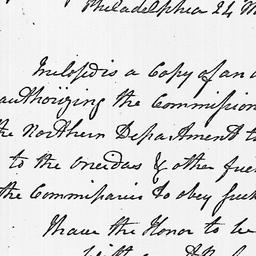 Philadelphia 24
Inclosed is a Copy of an
authorizing the Commission
the Northern Department to
to the Oneidas & other
the Commissaries to obey such
I have the Honor to be